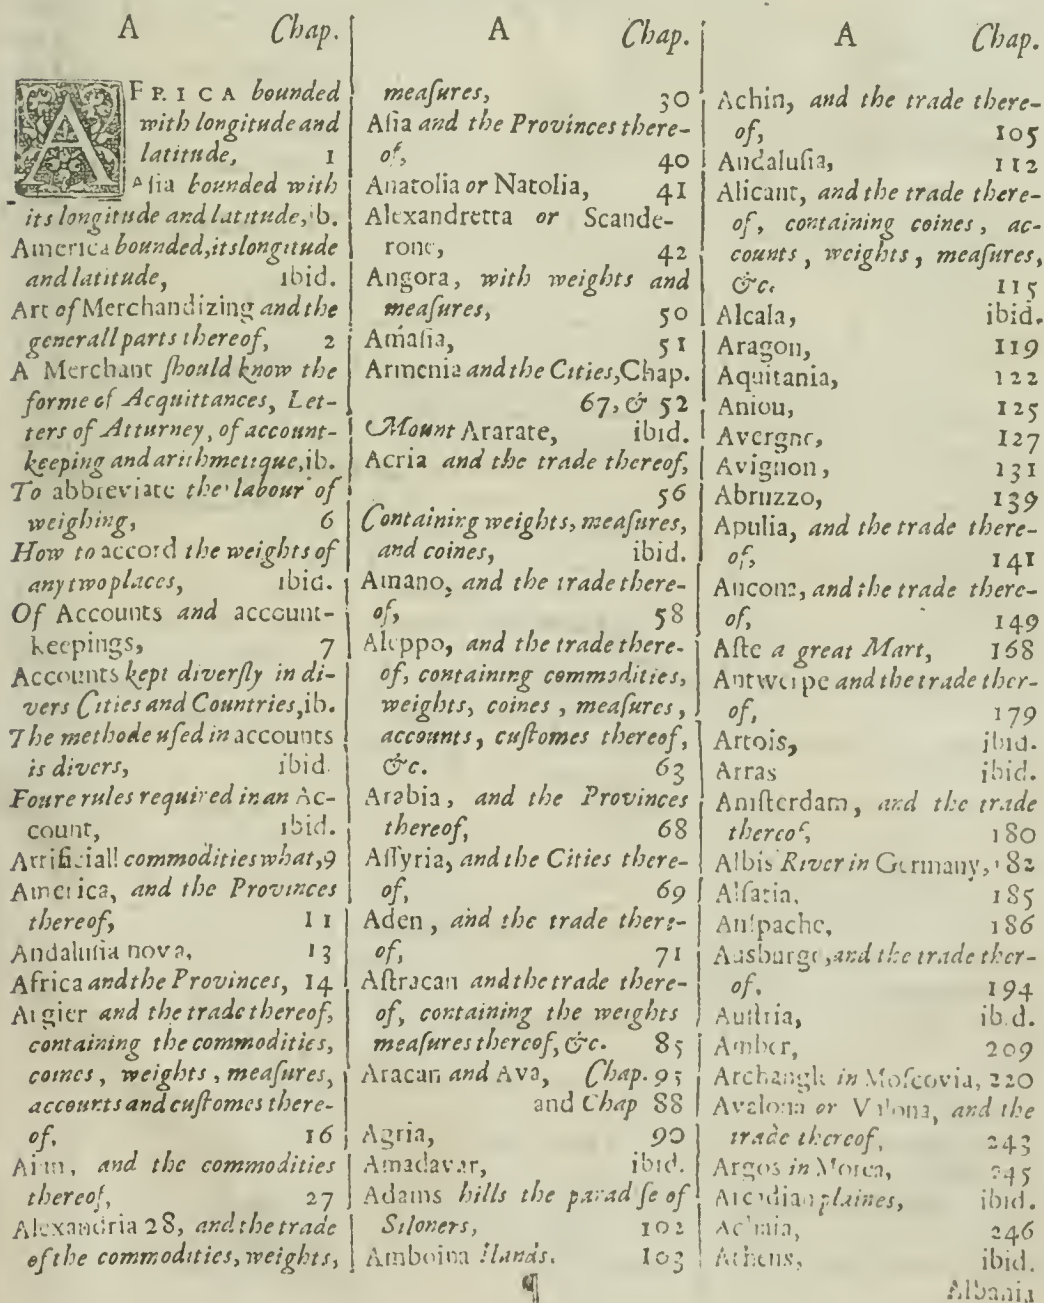 A Chap.
AFRICA bounded
with longitude and
latitude, 1
Aſia bounded with
its longitude and latitude, ib.
America bounded, its longitude
and latitude, ibid.
Art of Merchandizing and the
generall parts thereof, 2
A Merchant ſhould know the
forme of Acquittances, Let-
ters of Atturney, of account-
keeping and arithmetique, ib.
To abbreviate the labour of
weighing, 6
How to accord the weights of
any two places, ibid.
Of Accounts and account-
keepings, 7
Accounts kept diverſly in di-
vers Cities and Countries, ib.
The methode uſed in accounts
is divers, ibid.
Foure rules required in an Ac-
count, ibid.
Artificiall commodities what, 9
America, and the Provinces
thereof, 11
Andaluſia nova, 13
Africa and the Provinces, 14
Argier and the trade thereof,
containing the commodities,
coines, weights, meaſures,
accounts and cuſtomes there-
of, 16
and the commodities
thereof, 27
Alexandria 28, and the trade
of the commodities, weights,
A Chap.
meaſures, 30
Aſia and the Provinces there-
of, 40
Anatolia or Natolia, 41
Alexandretta or Scande-
rone, 42
Angora, with weights and
meaſures, 50
Amaſia, 51
Armenia and the Cities, Chap.
67, & 52
Mount Ararate, ibid.
Acria and the trade thereof,
56
Containing weights, meaſures,
and coines, ibid.
Amano, and the trade there-
of, 58
Aleppo, and the trade there-
of, containing commodities,
weights, coines, meaſures,
accounts, cuſtomes thereof,
&c. 63
Arabia, and the Provinces
thereof, 68
Aſſyria, and the Cities there-
of, 69
Aden, and the trade there-
of, 71
Aſtracan and the trade there-
of, containing the weights
meaſures thereof, &c. 85
Aracan and Ava, Chap. 95
and Chap 88
Agria, 90
Amadavar, ibid.
Adams hills the paradiſe of
Siloners, 102
Amboina Ilands. 103
¶
A Chap.
Achin, and the trade there-
of, 105
Andaluſia, 112
Alicant, and the trade there-
of, containing coines, ac-
counts, weights, meaſures,
&c. 115
Alcala, ibid.
Aragon, 119
Aquitania, 122
Aniou, 125
Avergne, 127
Avignon, 131
Abruzzo, 139
Apulia, and the trade there-
of, 141
Ancona, and the trade there-
of, 149
Aſte a great Mart, 168
Antwerpe and the trade ther-
of, 179
Artois, ibid.
Arras ibid.
Amſterdam, and the trade
thereof, 180
Albis River in Germany, 182
Alſatia, 185
Anſpache, 186
Ausburge, and the trade ther-
of. 194
Auſtria, ibid.
Amber, 209
Archangle in Moſcovia, 220
Avalona or Valona, and the
trade thereof, 243
Argos in Morea, 245
Arcadian plaines, ibid.
Achaia, 246
Athens, ibid.
Albania